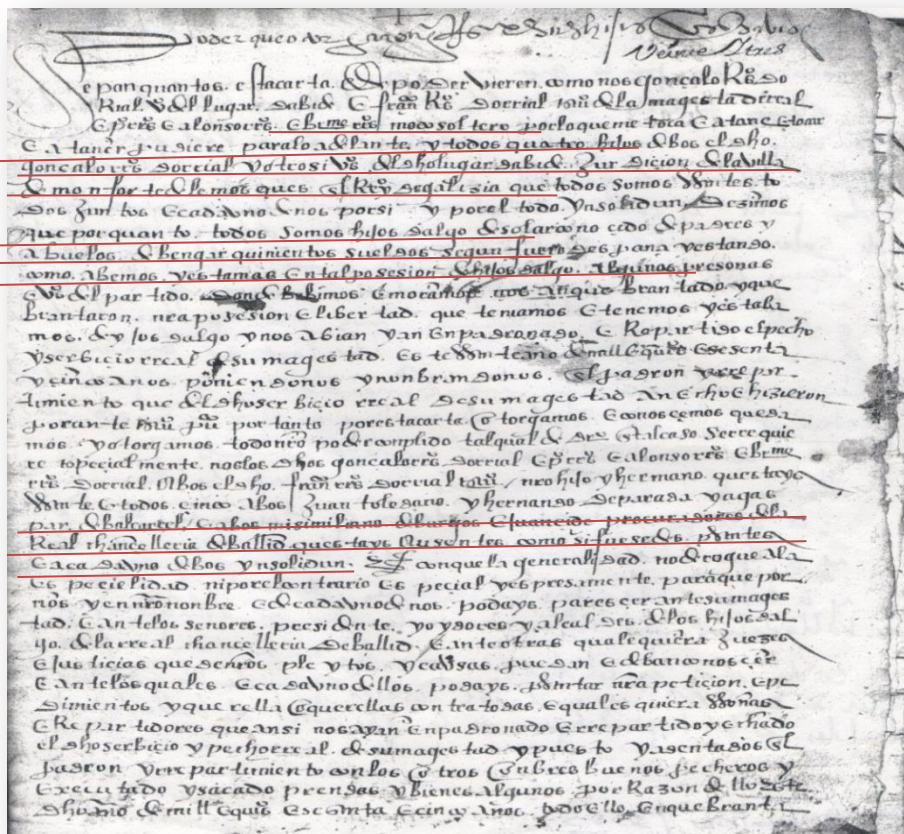 Poder que otorgaron
veinte y tres
Sepan quantos esta carta de poder vieren como nos gonçalo Rs do
Rial Vo del lugar dabid E fran Rs dorrial de la magestad rreal
E pero Rs E alonso rrs E bme rrs moço soltero por lo que me toca E atañe E tocar
E atañer pudiere para lo adelante y todos quatro hijos de bos el dho
gonçalo rrs dorrial y otrosi Vos del dho lugar dabid Jurdiçion de la villa
de monforte de lemos ques el Reyno de galizia que todos somos presentes to
dos juntos E cada vno de nos por si y por el todo ynsolidun dezimos
que por quanto todos somos hijos dalgo de solar cono çido de padres y
abuelos de bengar quinientos sueldos segun fuero despana y estando
como abemos y estamos En tal posesion de hijos dalgo algunas presonas
E Vos del partido donde bibimos E moramos nos an quebrantado y que
brantaron nra posesion E libertad que teniamos E tenemos y estaba
mos de yjos dalgo y nos abian y an Enpadronado E Repartido el pecho
y serbiçio rreal de su magestad Este presente año de mill E quios E sesenta
y çinco años poniendonos y nonbrandonos El padron y rrepar
timiento que del dho serbiçio rreal de su magestad an Echo E hizieron
por ante por tanto por esta carta E otorgamos E conosçemos que da
mos y otorgamos todo nro poder conplido tal qual de dro En tal caso Se rrequie
re Espeçialmente nos los dhos gonçalo rrs dorrial E pero rrs E alonso rrs E bme
rrs dorrial A bos el dho fran rrs dorrial nro hijo y hermano questays
presente E todos çinco a bos Juan toledano y hernando de parada y a gas
par de balcarcel E a bos misimiliano de burgos E juan procuradores de la
Real chançelleria de ballid questays Ausentes como si fuesedes presentes
E a cada vno de bos ynsolidun conque la generalidad no derogue a la
Espeçielidad ni por el contrario Espeçial y espresamente para que por
nos y en nro nonbre E de cada vno de nos podays paresçer ante su mages
tad E ante los señores presidente y oydores y alcaldes de los hijos dal
go de la rreal chançelleria de ballid E ante otras qualesquiera Juezes
E justiçias que de nros pleytos y causas puedan E deban conosçer
E ante los quales E cada vno dellos podays presentar nra petiçion E pe
dimientos y querella O querellas contra todas E qualesquiera presonas
E Repartidores que ansi nos ayan Enpadronado E rrepartido y echado
el dho serbiçio y pecho rreal de su magestad y puesto y asentados El
padron y rrepartimiento con los O tros Onbres buenos pecheros y
Executado y sacado prendas y bienes algunos por Razon dello Este
dho año de mill E quios E sesenta E çinco años todo ello En quebranta